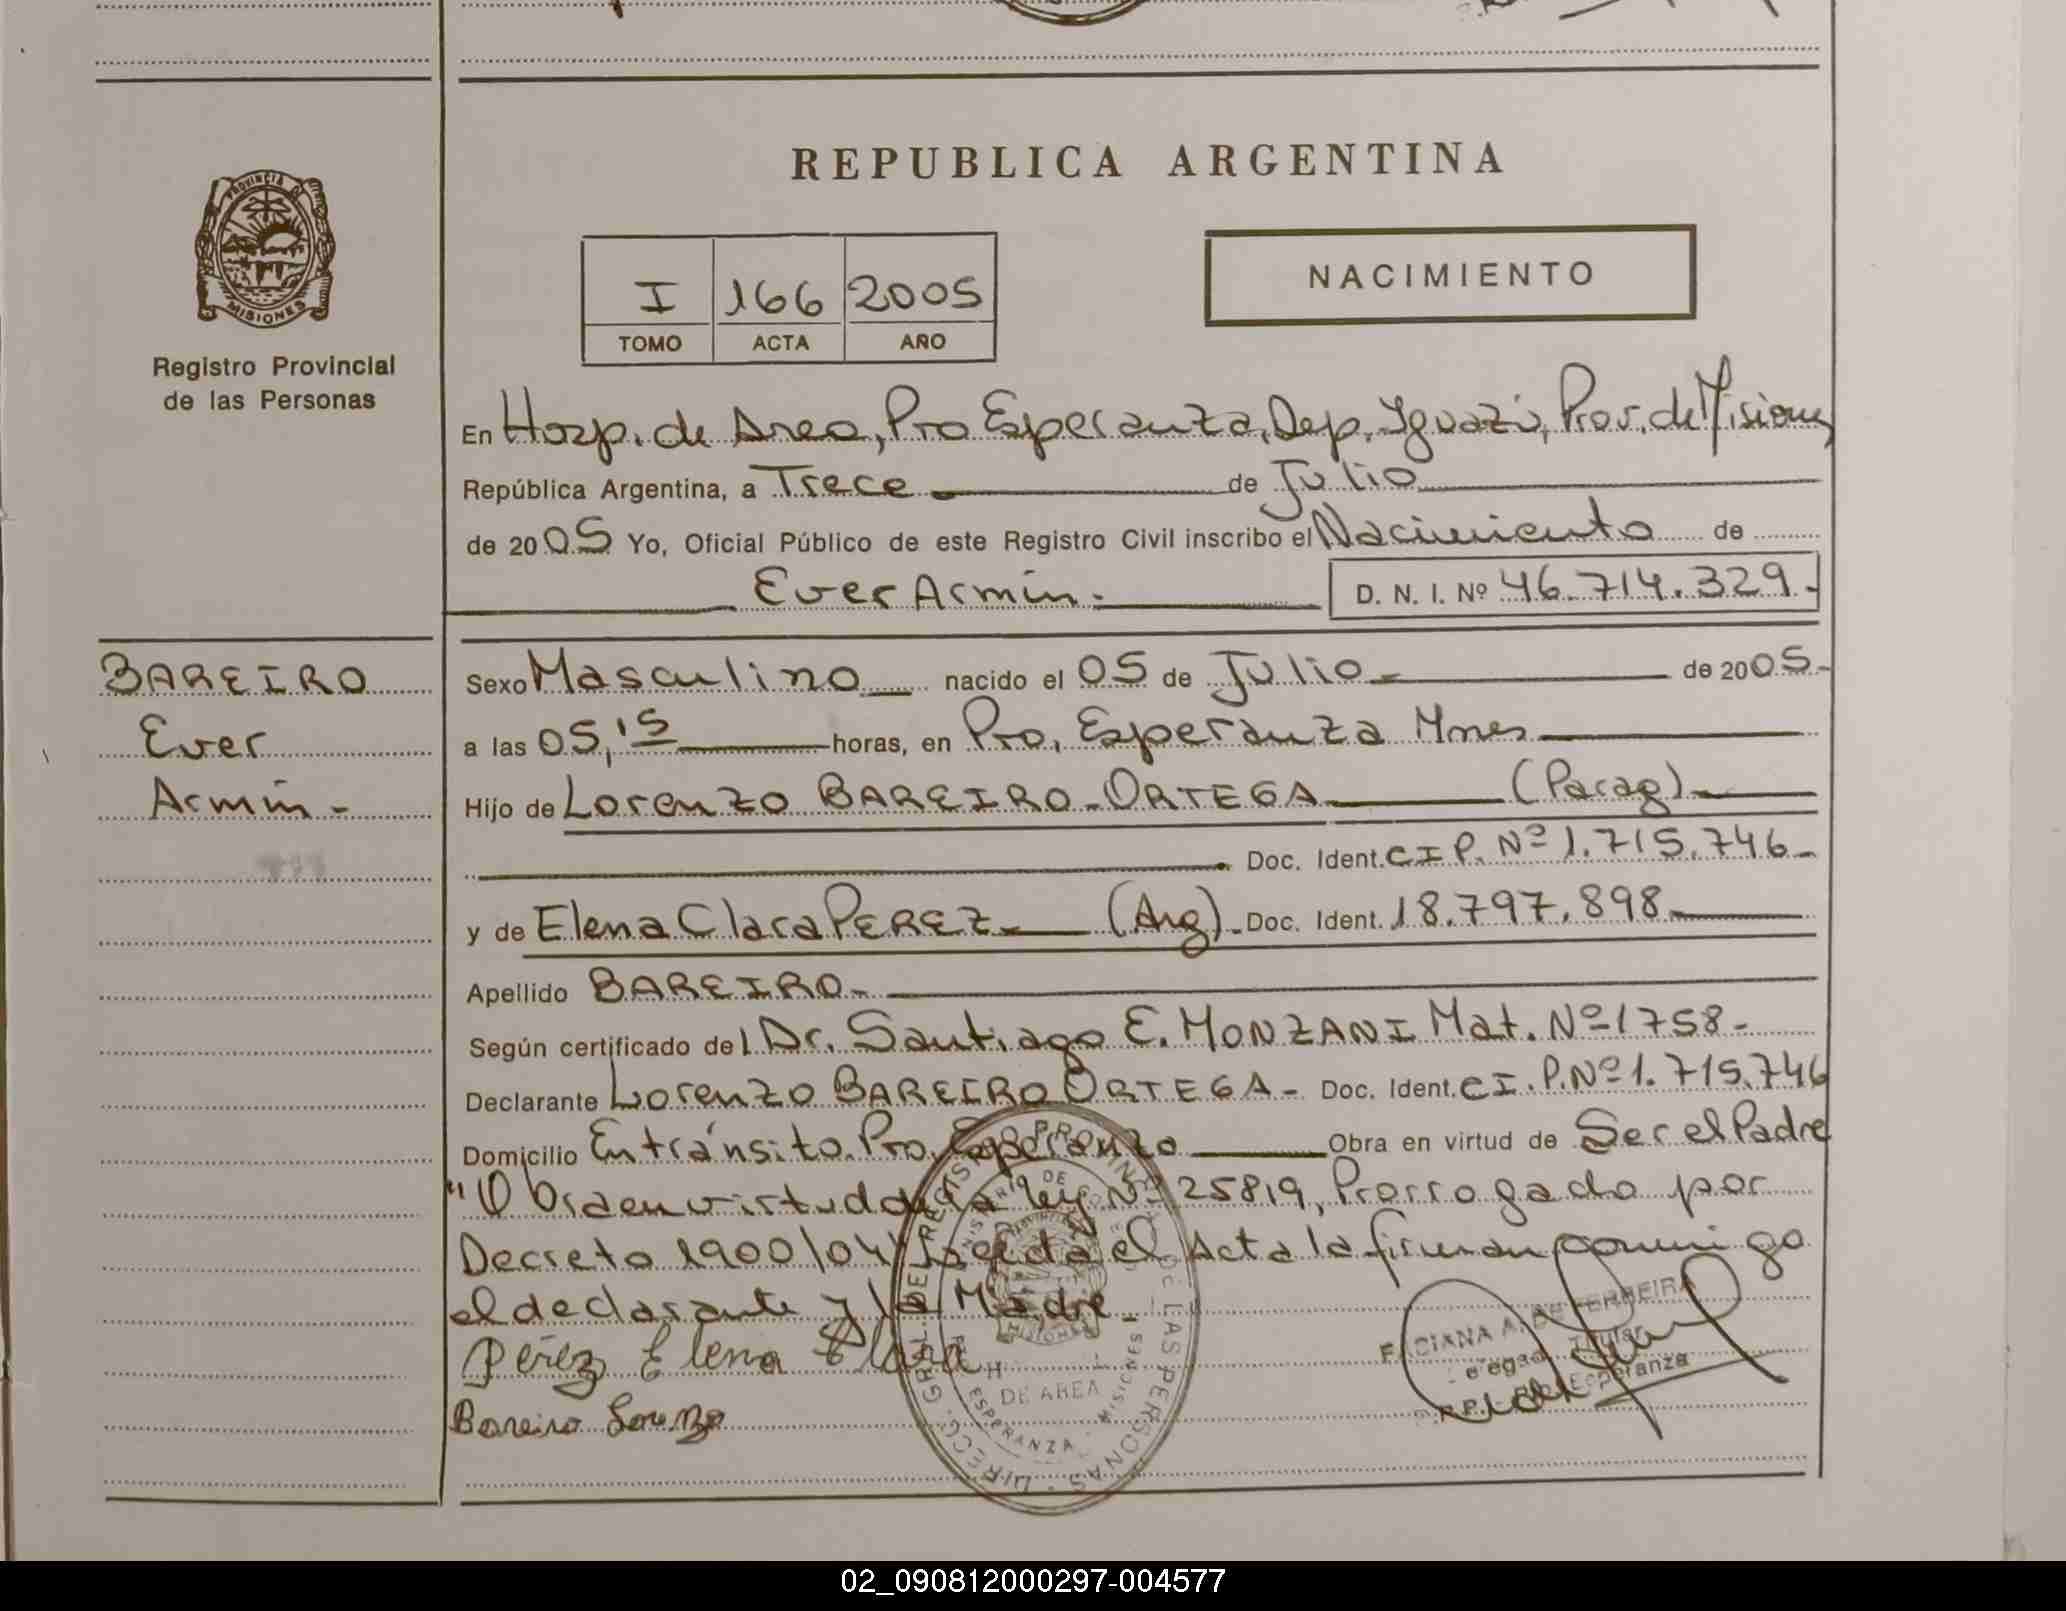 REPUBLICA ARGENTINA
PROVINCIA D
MISIONES
Registro Provincial
de las Personas
I 166 2005
TOMO ACTA AÑO
NACIMIENTO
En Hosp. de Area, Pto Esperanza, Dep. Iguazú, Prov. de Misiones
República Argentina, a Trece de Julio
de 2005 Yo, Oficial Público de este Registro Civil inscribo el Nacimiento de
Ever Armin.
D. N. I. Nº 46.714.329.-
BAREIRO
Ever
Armin -
Sexo Masculino nacido el 05 de Julio - de 2005.-
a las 05,15 horas, en Pto. Esperanza Mnes
Hijo de Lorenzo BAREIRO-ORTEGA (Parag)-
Doc. Ident. C I P. Nº 1.715.746-
y de Elena Clara PEREZ- (Arg).- Doc. Ident. 18.797.898-
Apellido BAREIRO-
Según certificado del Dr. Santiago E. MONZANI Mat. Nº 1758-
Declarante Lorenzo BAREIRO ORTEGA- Doc. Ident. CI. P. Nº 1.715.746
Domicilio En tránsito Pto. Esperanza Obra en virtud de Ser el Padre
"Obra en virtud de la ley Nº 25819, Prorrogado por
Decreto 1900/04" Leída el Acta la firman conmigo
el declarante y la Madre
Pérez Elena Clara
Bareiro Lorenzo
DIRECC. GRAL. DE REGISTRO PROVINCIAL DE LAS PERSONAS
MINISTERIO DE GO
MISIONES
H DE AREA
ESPERANZA - MISIONES
A. DE FERREIRA
Titular
Esperanza
02_090812000297-004577